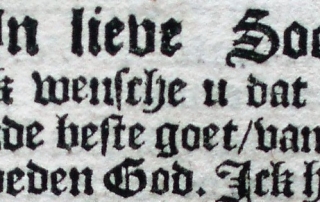 In lieve Soo
k wensche u dat
de beste goet/van
eden God. Ick h